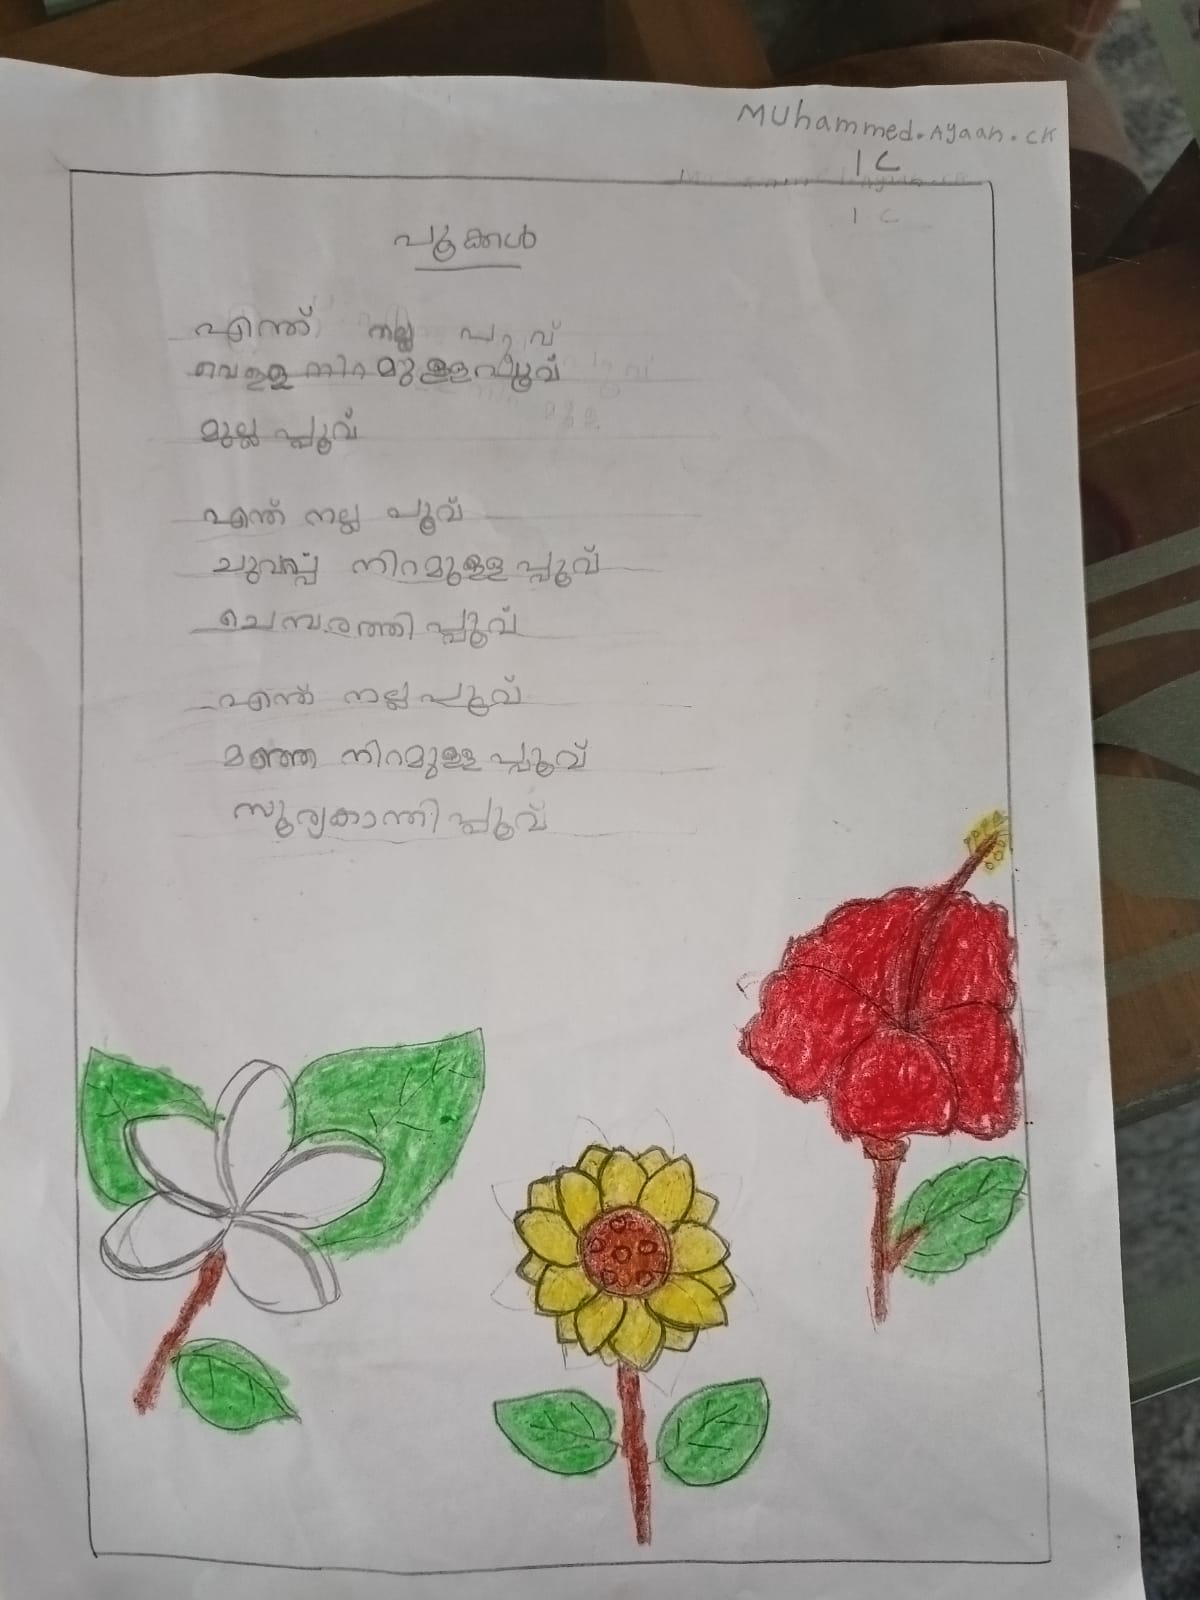 Muhammed.Ayaan.CK
1 C
പൂക്കൾ
എന്ത് നല്ല പൂവ്
വെള്ള നിറമുള്ളപ്പൂവ്
മുല്ല പ്പൂവ്
എന്ത് നല്ല പൂവ്
ചുവപ്പ് നിറമുള്ള പ്പൂവ്
ചെമ്പരത്തി പ്പൂവ്
എന്ത് നല്ല പൂവ്
മഞ്ഞ നിറമുള്ള പ്പൂവ്
സൂര്യകാന്തി പ്പൂവ്